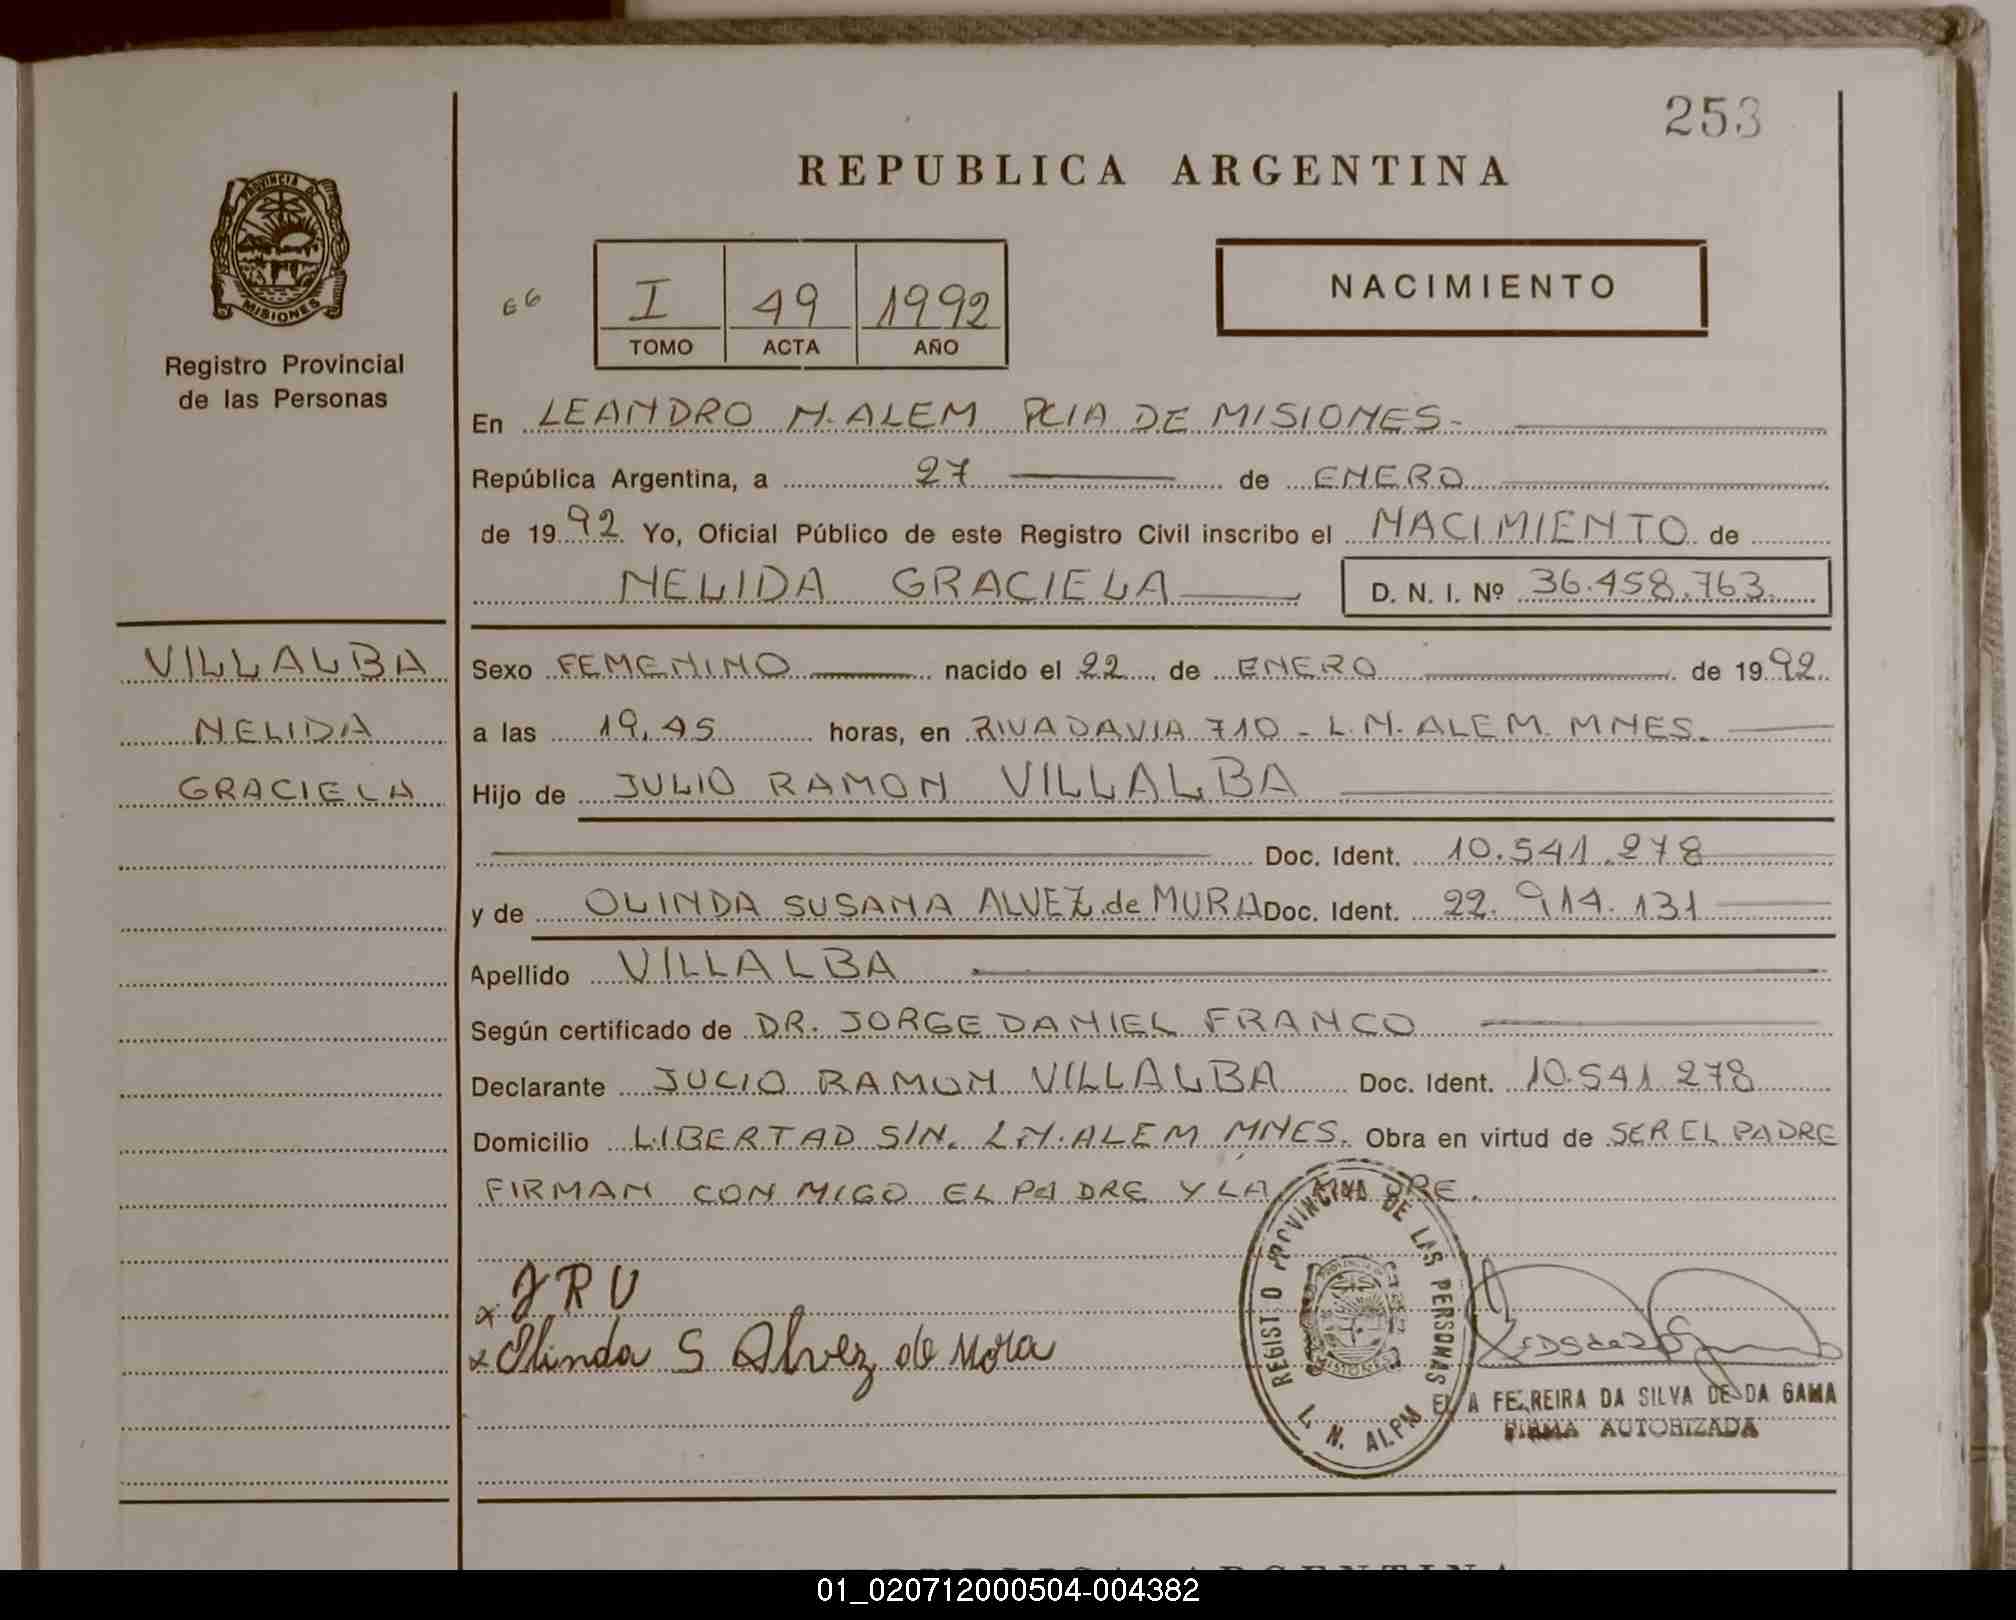 253
REPUBLICA ARGENTINA
PROVINCIA DE
MISIONES
Registro Provincial
de las Personas
66
I 49 1992
TOMO ACTA AÑO
NACIMIENTO
En LEANDRO N. ALEM PCIA DE MISIONES.
República Argentina, a 27 de ENERO
de 1992 Yo, Oficial Público de este Registro Civil inscribo el NACIMIENTO de
NELIDA GRACIELA D. N. I. Nº 36.458.763
VILLALBA
NELIDA
GRACIELA
Sexo FEMENINO nacido el 22 de ENERO de 1992
a las 19,45 horas, en RIVADAVIA 710 - L.N. ALEM MNES.
Hijo de JULIO RAMON VILLALBA
Doc. Ident. 10.541.278
y de OLINDA SUSANA ALVEZ de MURA Doc. Ident. 22.914.131
Apellido VILLALBA
Según certificado de DR. JORGE DANIEL FRANCO
Declarante JULIO RAMON VILLALBA Doc. Ident. 10.541.278
Domicilio LIBERTAD S/N. L.N. ALEM MNES. Obra en virtud de SER EL PADRE
FIRMAN CON MIGO EL PADRE Y LA MADRE.
x JRV
x Olinda S Alvez de Mora
REGISTO PROVINCIAL DE LAS PERSONAS
L. N. ALEM
FERREIRA DA SILVA DE DA GAMA
FIRMA AUTORIZADA
REPUBLICA ARGENTINA
01_020712000504-004382